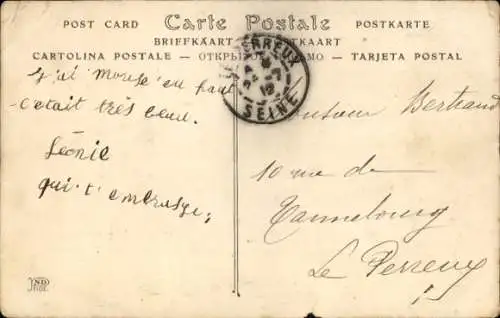 POST CARD Carte Postale POSTKARTE
BRIEFKAART POSTKAART
CARTOLINA POSTALE - ОТКРЫ - TARJETA POSTAL
LE PERREUX
SEINE
en haut
c'etait très beau.
Léonie
qui t'embrasse;
Monsieur Bertrand
10 rue de
Le Perreux
ND
Phot.